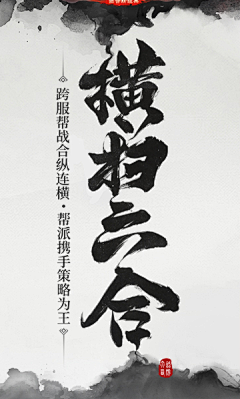 横扫六合
跨服帮战合纵连横·帮派携手策略为王